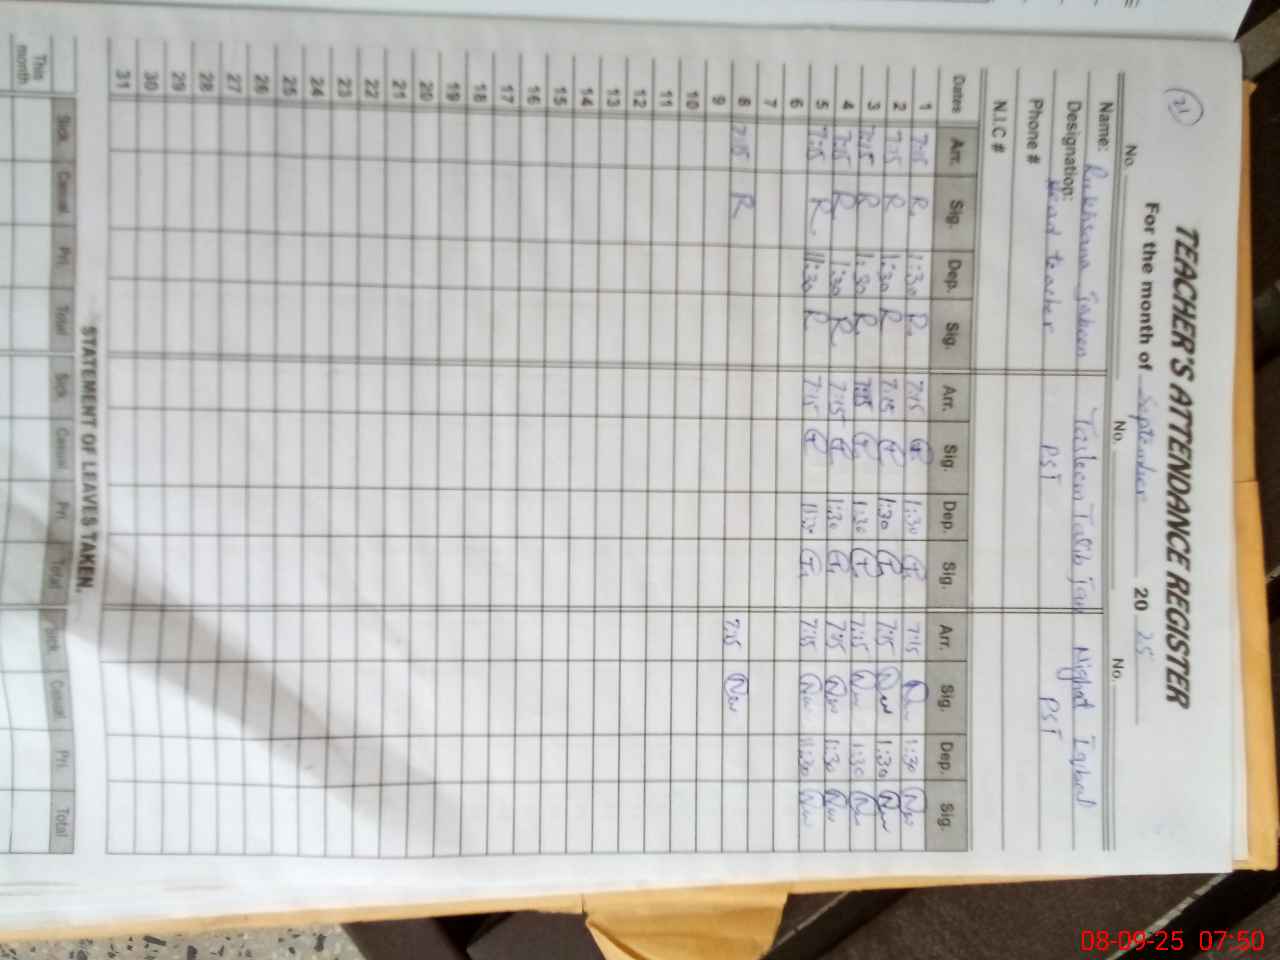 21
TEACHER'S ATTENDANCE REGISTER
For the month of September 2025
No. No. No.
Name: Rukhsana Jabeen Tasleem Talib Jan Nighat Iqbal
Designation: Head teacher PST PST
Phone #
N.I.C #
Dates Arr. Sig. Dep. Sig. Arr. Sig. Dep. Sig. Arr. Sig. Dep. Sig.
1 7:15 R 1:30 R 7:15 1:30 7:15 1:30
2 7:15 R 1:30 R 7:15 1:30 7:15 1:30
3 7:15 R 1:30 R 7:15 1:30 7:15 1:30
4 7:15 R 1:30 R 7:15 1:30 7:15 1:30
5 7:15 R 11:30 R 7:15 11:30 7:15 11:30
6
7
8 7:15 R 7:15
9
10
11
12
13
14
15
16
17
18
19
20
21
22
23
24
25
26
27
28
29
30
31
STATEMENT OF LEAVES TAKEN.
Sick Casual Pri. Total Sick Casual Pri. Total Sick Casual Pri. Total
This month
08-09-25 07:50